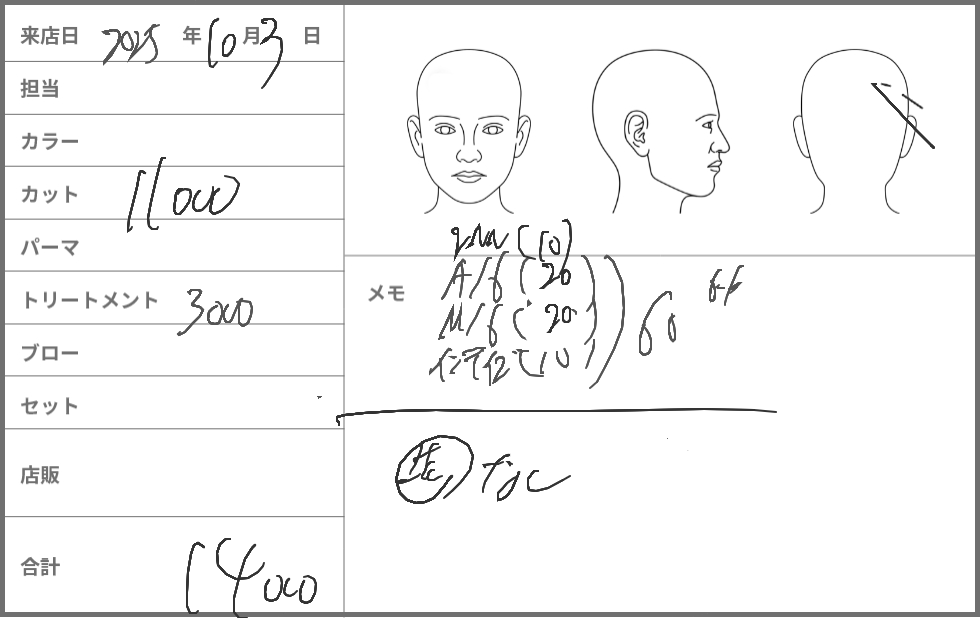 来店日 2025 年 10 月 3 日
担当
カラー
カット 11000
パーマ
トリートメント 3000
ブロー
セット
店販
合計 14000
(10)
メモ A/6 (20)
M/6 (20) 60
(10)
なし